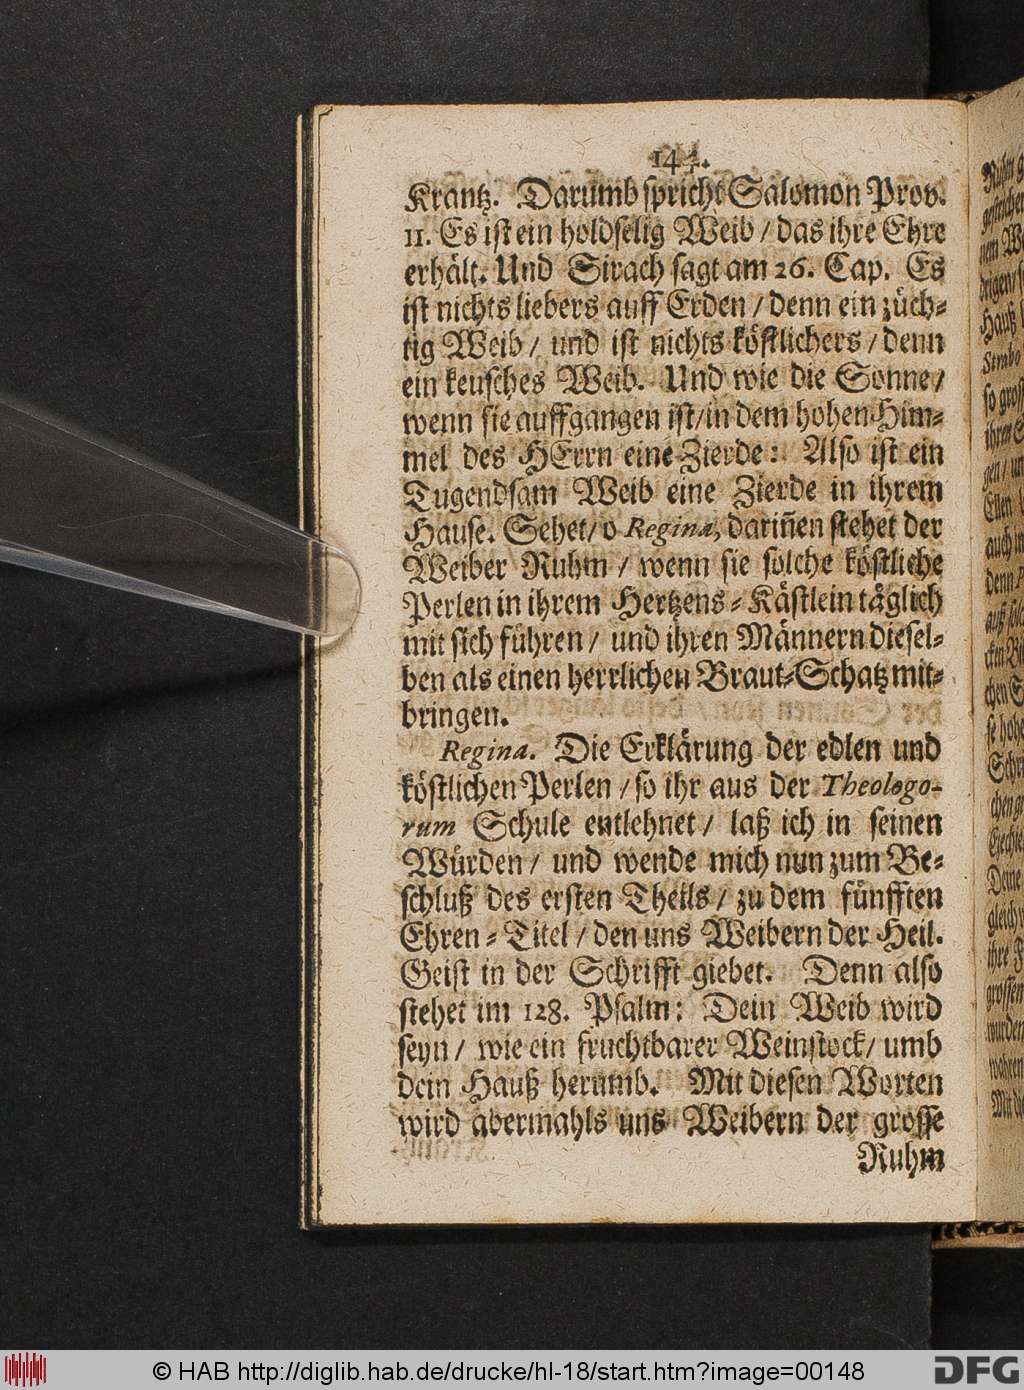 144.
Krantz. Darumb spricht Salomon Prov.
11. Es ist ein holdselig Weib / das ihre Ehre
erhält. Und Sirach sagt am 26. Cap. Es
ist nichts liebers auff Erden / denn ein züch-
tig Weib / und ist nichts köstlichers / denn
ein keusches Weib. Und wie die Sonne /
wenn sie auffgangen ist / in dem hohen Him-
mel des HErrn eine Zierde: Also ist ein
Tugendsam Weib eine Zierde in ihrem
Hause. Sehet / o Regina, dariñen stehet der
Weiber Ruhm / wenn sie solche köstliche
Perlen in ihrem Hertzens-Kästlein täglich
mit sich führen / und ihren Männern diesel-
ben als einen herrlichen Braut-Schatz mit-
bringen.
Regina. Die Erklärung der edlen und
köstlichen Perlen / so ihr aus der Theologo-
rum Schule entlehnet / laß ich in seinen
Würden / und wende mich nun zum Be-
schluß des ersten Theils / zu dem fünfften
Ehren-Titel / den uns Weibern der Heil.
Geist in der Schrifft giebet. Denn also
stehet im 128. Psalm: Dein Weib wird
seyn / wie ein fruchtbarer Weinstock / umb
dein Hauß herumb. Mit diesen Worten
wird abermahls uns Weibern der grosse
Ruhm
© HAB http://diglib.hab.de/drucke/hl-18/start.htm?image=00148
DFG